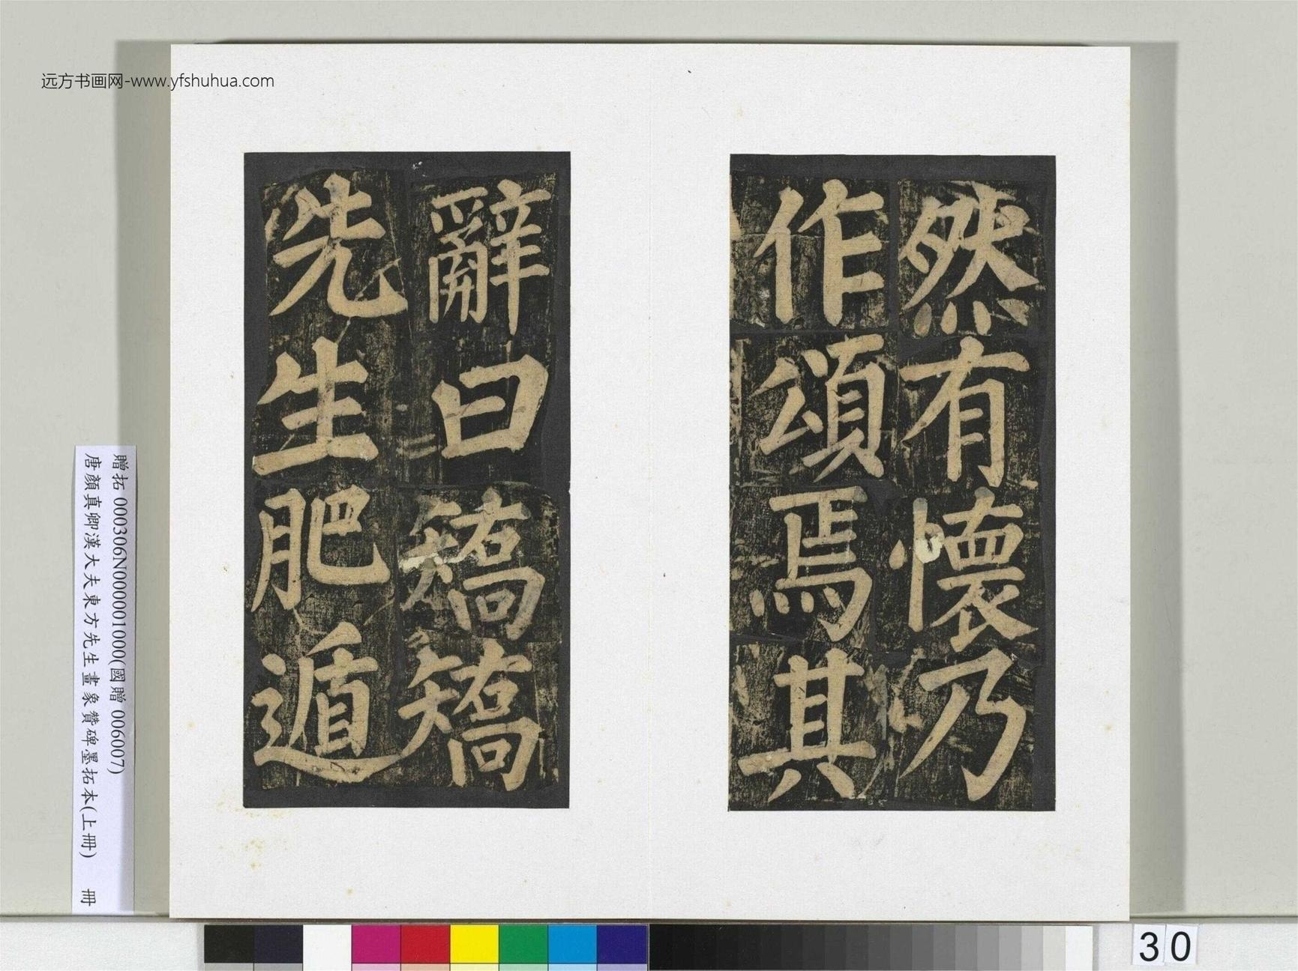 远方书画网-www.yfshuhua.com
然有懷乃
作頌焉其
辭曰矯矯
先生肥遁
贈拓 000306N000001000(國贈 006007)
唐顏真卿漢大夫東方先生畫象贊碑墨拓本(上冊) 冊
30